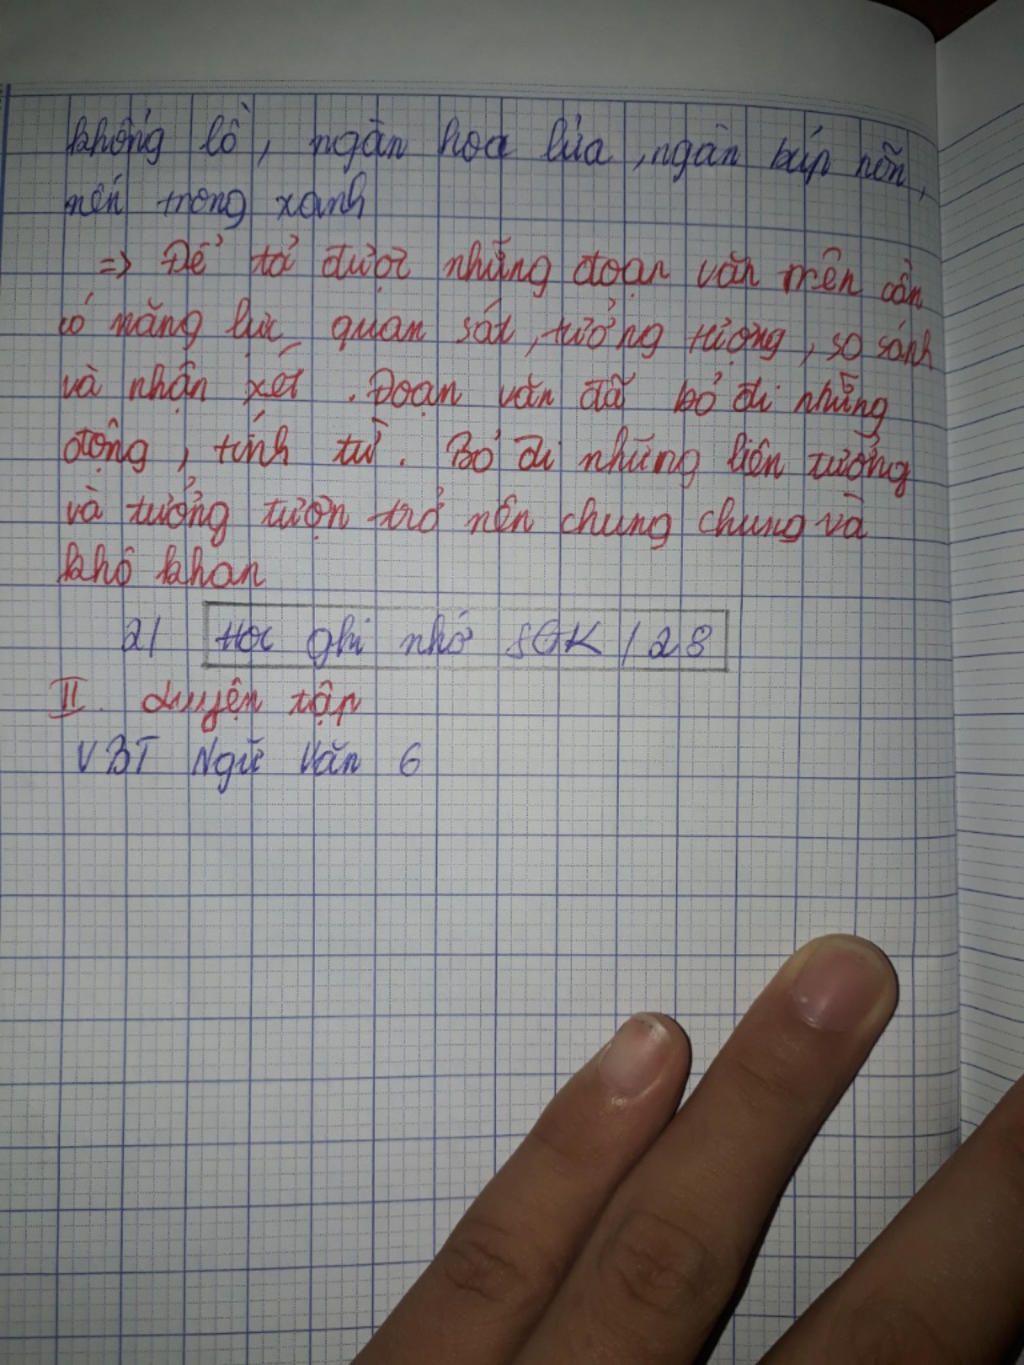 khổng lồ, ngàn hoa lửa, ngàn búp nõn,
nến trong xanh
=> Để tả được những đoạn văn trên cần
có năng lực quan sát, tưởng tượng, so sánh
và nhận xét. Đoạn văn đã bỏ đi những
động, tính từ. Bỏ đi những liên tưởng
và tưởng tượn trở nên chung chung và
khô khan
2/ Học ghi nhớ SGK / 28
II. Luyện tập
VBT Ngữ Văn 6